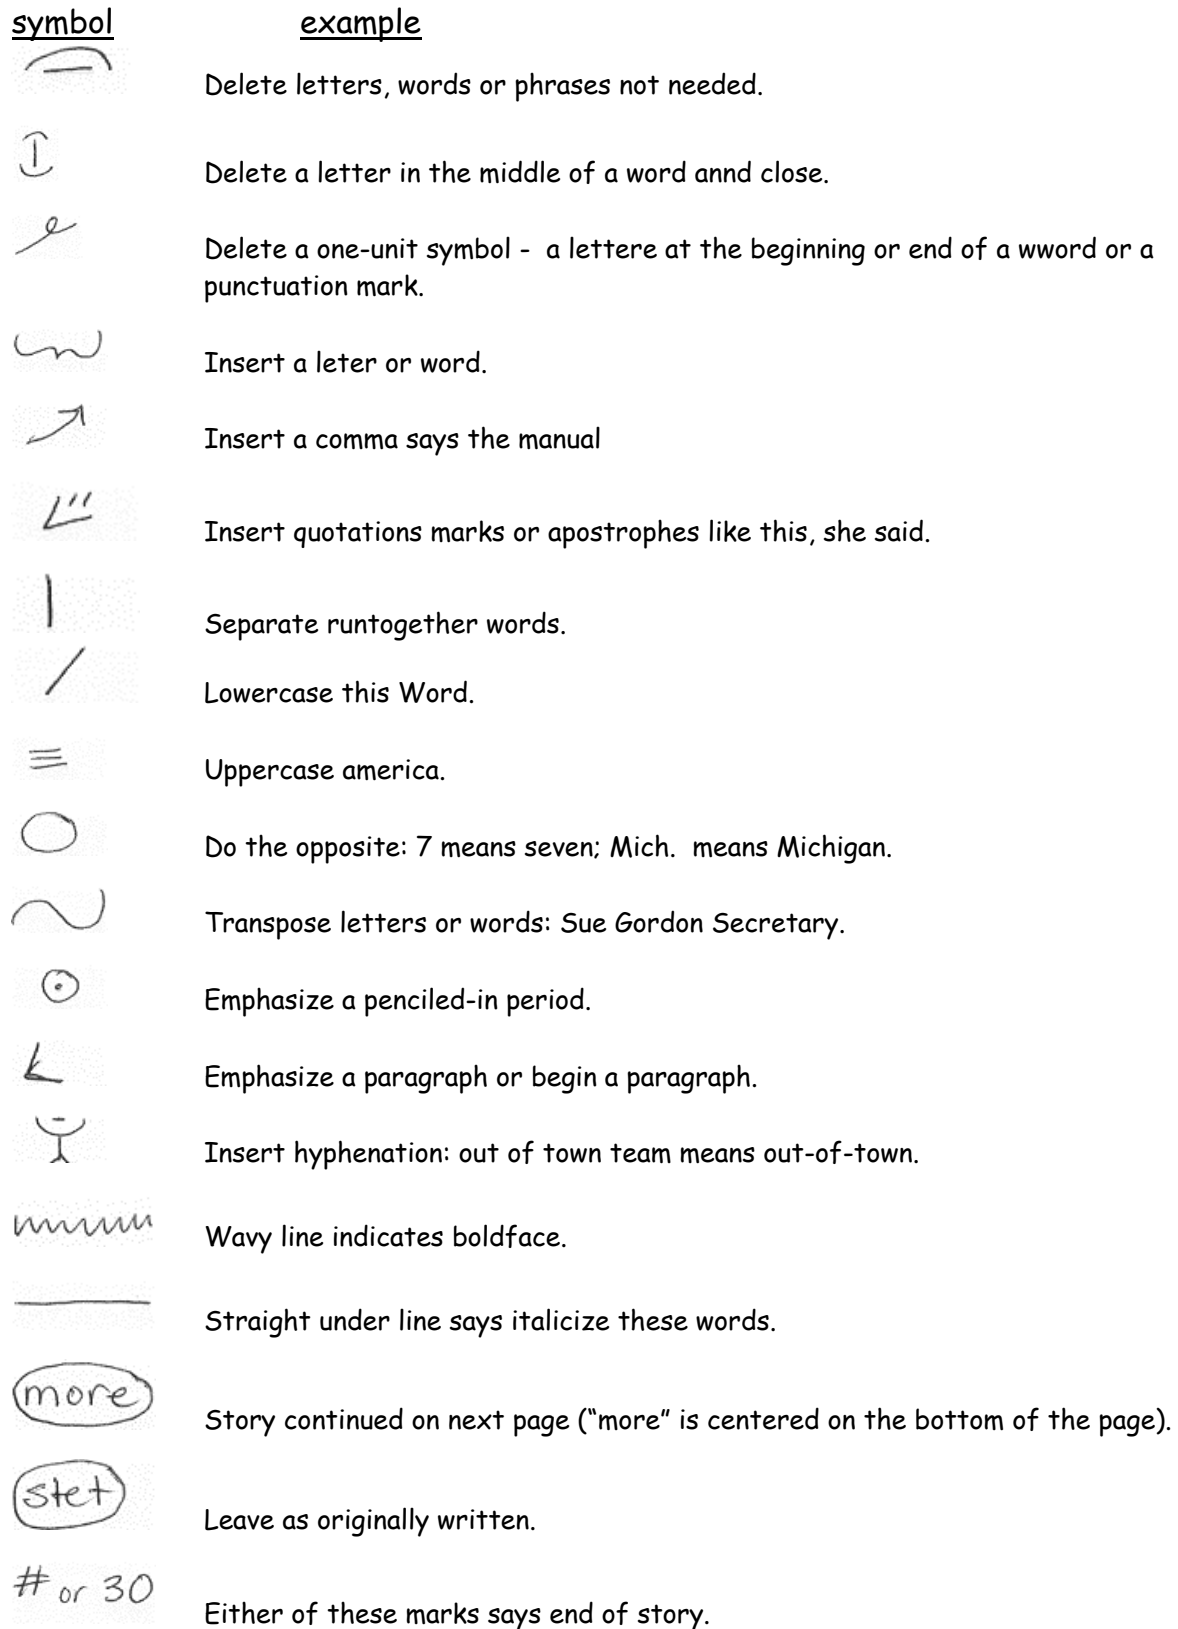 symbol example
Delete letters, words or phrases not needed.
Delete a letter in the middle of a word annd close.
Delete a one-unit symbol -  a lettere at the beginning or end of a wword or a
punctuation mark.
Insert a leter or word.
Insert a comma says the manual
Insert quotations marks or apostrophes like this, she said.
Separate runtogether words.
Lowercase this Word.
Uppercase america.
Do the opposite: 7 means seven; Mich.  means Michigan.
Transpose letters or words: Sue Gordon Secretary.
Emphasize a penciled-in period.
Emphasize a paragraph or begin a paragraph.
Insert hyphenation: out of town team means out-of-town.
Wavy line indicates boldface.
Straight under line says italicize these words.
more
Story continued on next page (“more” is centered on the bottom of the page).
stet
Leave as originally written.
# or 30
Either of these marks says end of story.